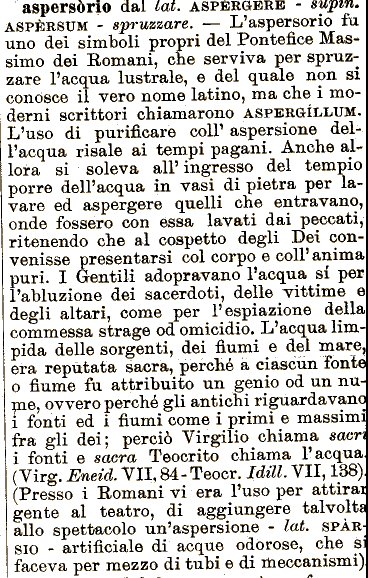 aspersòrio dal lat. ASPÈRGERE - supin.
ASPÈRSUM - spruzzare. — L'aspersorio fu
uno dei simboli propri del Pontefice Mas-
simo dei Romani, che serviva per spruz-
zare l'acqua lustrale, e del quale non si
conosce il vero nome latino, ma che i mo-
derni scrittori chiamarono ASPERGÍLLUM.
L'uso di purificare coll' aspersione del-
l'acqua risale ai tempi pagani. Anche al-
lora si soleva all' ingresso del tempio
porre dell'acqua in vasi di pietra per la-
vare ed aspergere quelli che entravano,
onde fossero con essa lavati dai peccati,
ritenendo che al cospetto degli Dei con-
venisse presentarsi col corpo e coll'anima
puri. I Gentili adopravano l'acqua sí per
l'abluzione dei sacerdoti, delle vittime e
degli altari, come per l'espiazione della
commessa strage od omicidio. L'acqua lim-
pida delle sorgenti, dei fiumi e del mare,
era reputata sacra, perché a ciascun fonte
o fiume fu attribuito un genio od un nu-
me, ovvero perché gli antichi riguardavano
i fonti ed i fiumi come i primi e massimi
fra gli dei; perciò Virgilio chiama sacri
i fonti e sacra Teocrito chiama l'acqua.
(Virg. Eneid. VII, 84 - Teocr. Idill. VII, 138).
(Presso i Romani vi era l'uso per attirar
gente al teatro, di aggiungere talvolta
allo spettacolo un'aspersione - lat. SPÀR-
SIO - artificiale di acque odorose, che si
faceva per mezzo di tubi e di meccanismi)